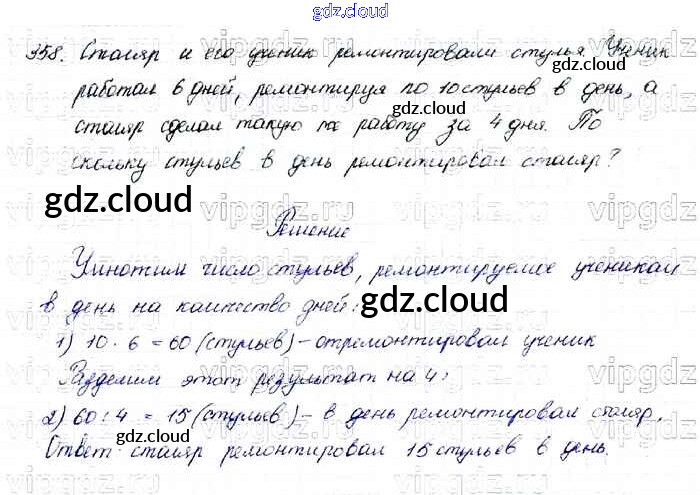 gdz.cloud
358. Столяр и его ученик ремонтировали стулья. Ученик
работал 6 дней, ремонтируя по 10 стульев в день, а
gdz.cloud
столяр сделал такую же работу за 4 дня. По
скольку стульев в день ремонтировал столяр?
gdz.cloud
vipgdz.ru
Решение
Умножим число стульев, ремонтируемое учеником
в день на количество дней:
gdz.cloud
1) 10 · 6 = 60 (стульев) – отремонтировал ученик
Разделим этот результат на 4:
gdz.cloud
2) 60 : 4 = 15 (стульев) – в день ремонтировал столяр.
gdz.cloud
Ответ: столяр ремонтировал 15 стульев в день.
gdz.cloud